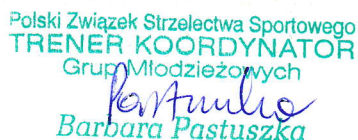 Polski Związek Strzelectwa Sportowego
TRENER KOORDYNATOR
Grup Młodzieżowych
Pastuszka
Barbara Pastuszka